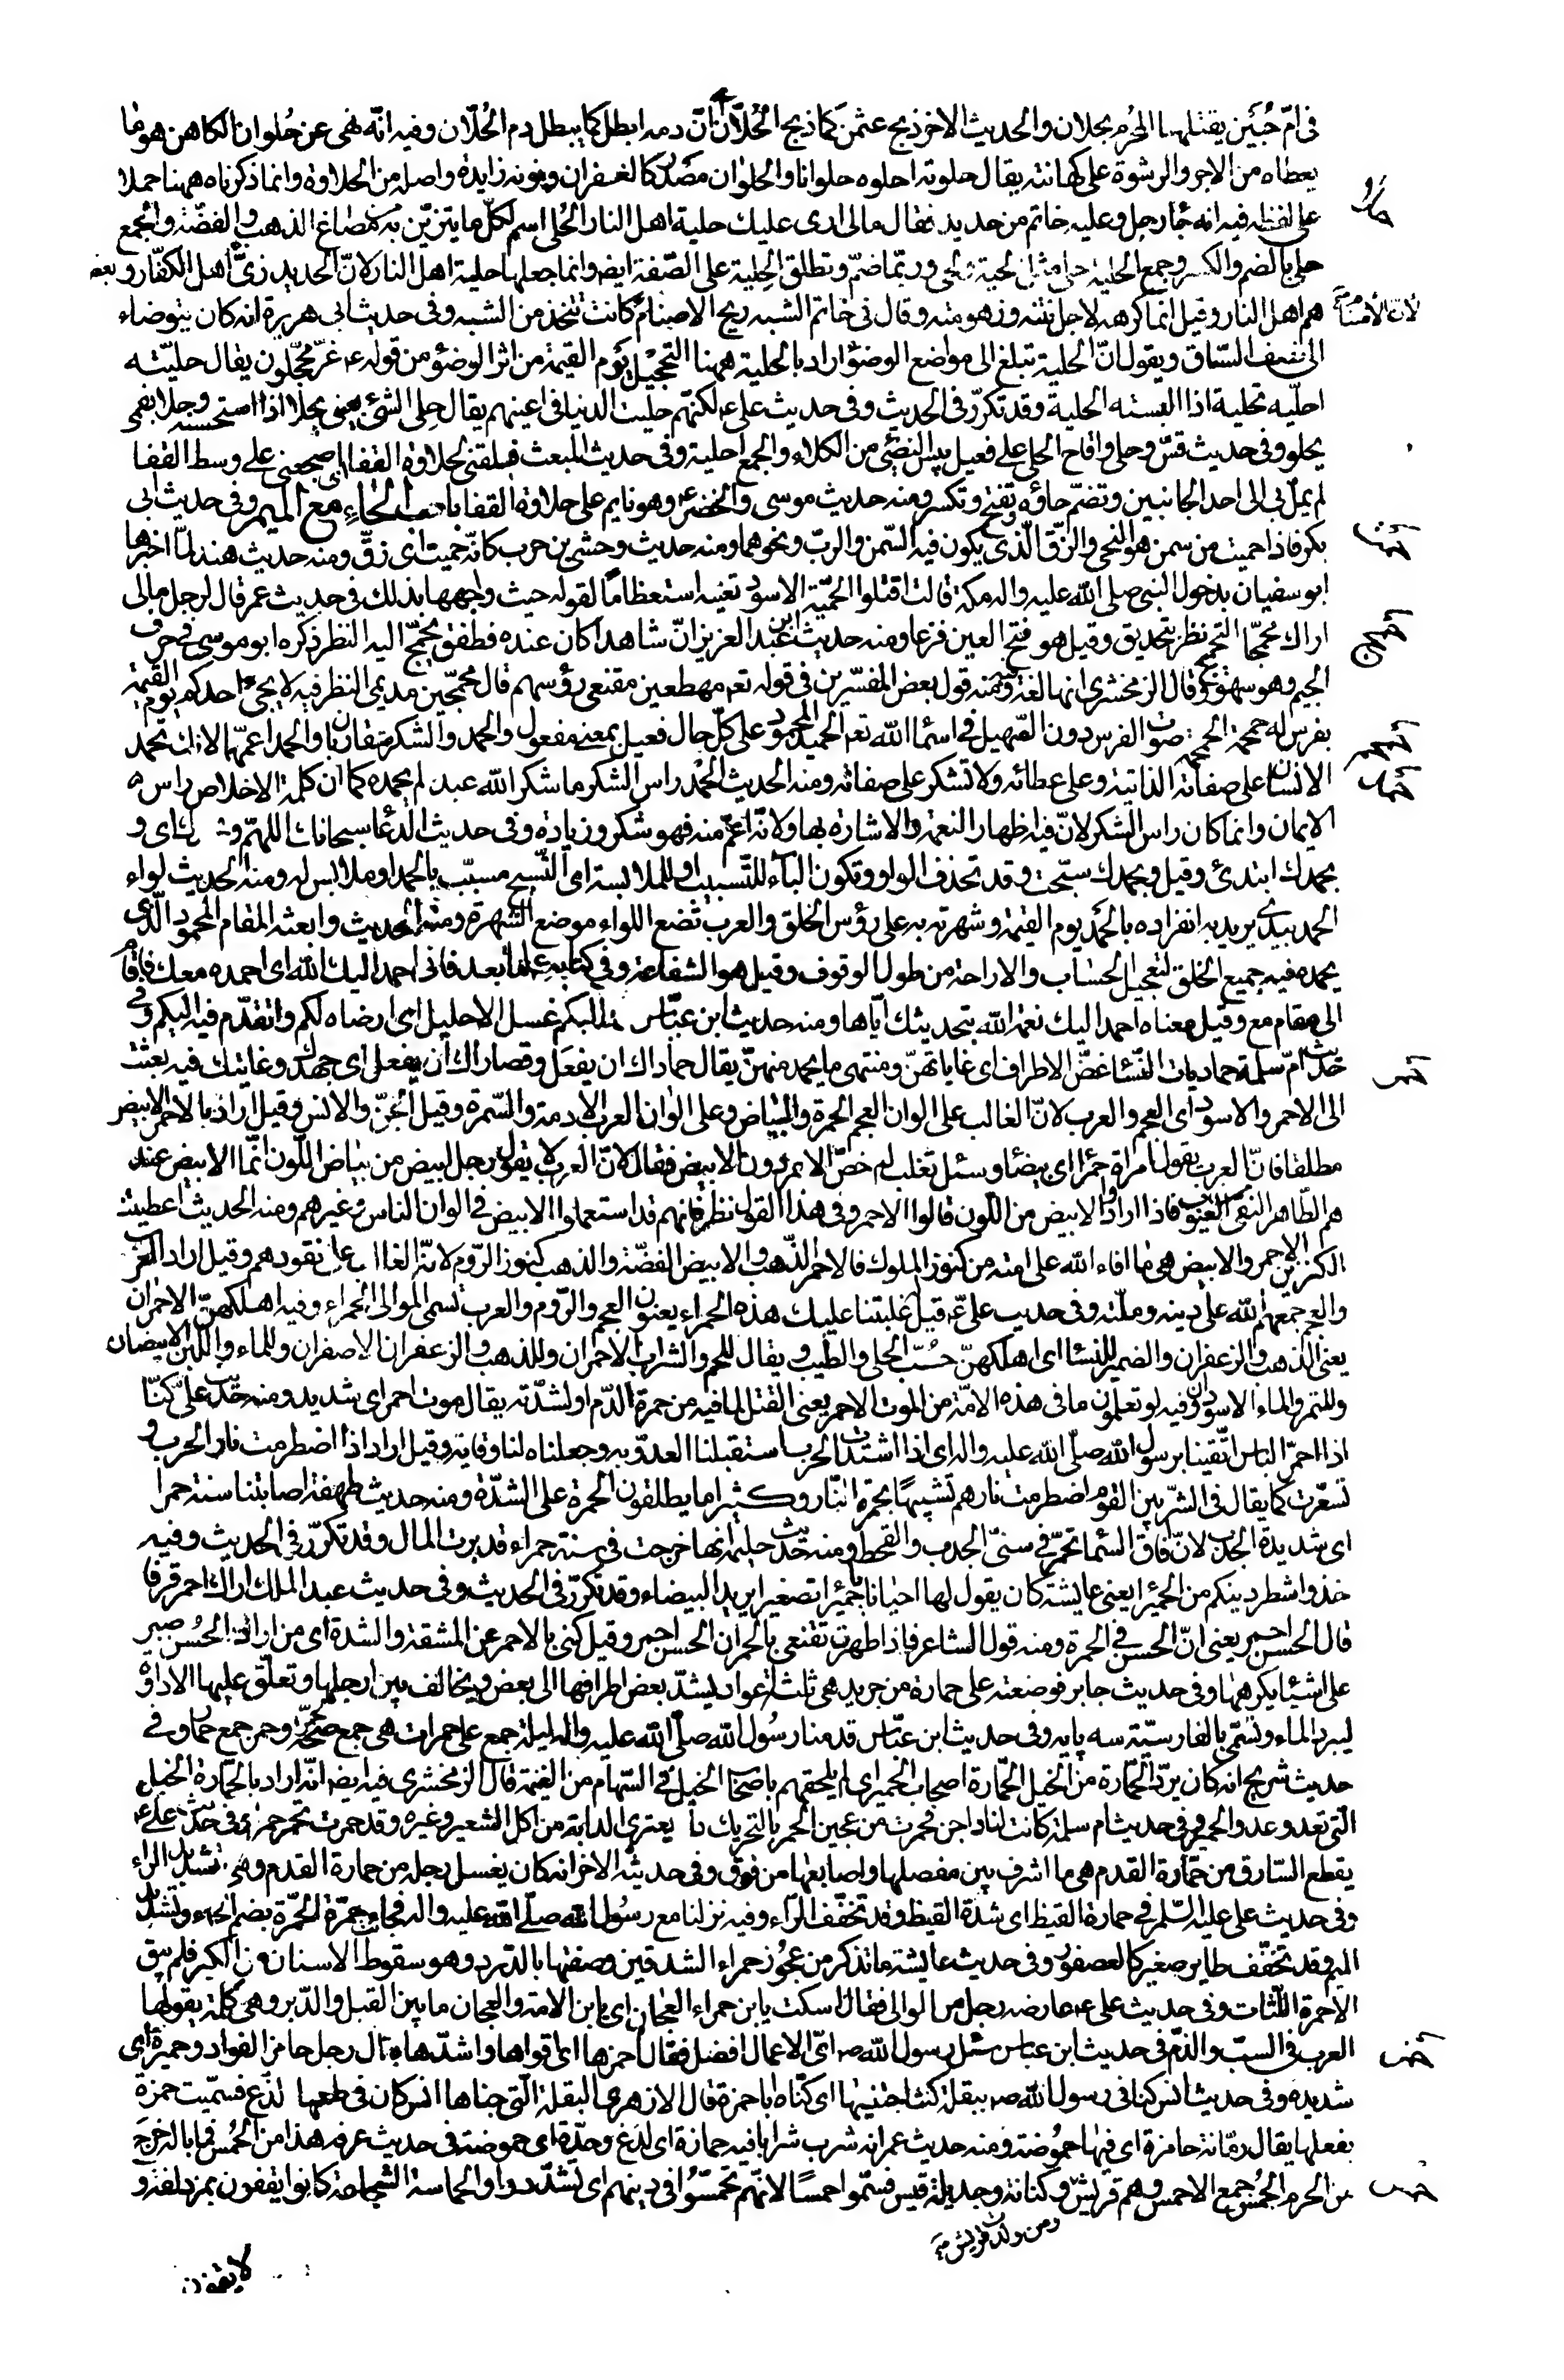 فى امّ حُبَين يقتلها المحرم بحلان والحديث الاخر ذبح عثمن كما ذبح الحُلّان اى انّ دمه ابطل كما يبطل دم الحُلّان وفيه انّه نهى عن حُلوان الكاهن هو ما
يعطاه من الاجر والرشوة على كهانته يقال حلوته احلوه حلوانا والحلوان مصدر كالغفران ونونه زايدة واصله من الحلاوة وانما ذكرناه ههنا حملا
على لفظه فيه انه جاء رجل وعليه خاتم من حديد فقال مالى ارى عليك حلية اهل النار الحُلى اسم لكلّ ما يتزيّن به من مصاغ الذهب والفضّة والجمع
حلى بالضم والكسر وجمع الحلية حلى مثل لحية ولحى وربّما ضمّ وتطلق الحِلية على الصّفة ايضا وانما جعلها حلية اهل النار لانّ الحديد زىّ اهل الكفّار وبعض
هم اهل النار وقيل انما كرهه لاجل نتنه وزهومته وقال فى خاتم الشبه ريح الاصنام كانت تتخذ من الشبه وفى حديث ابى هريرة انه كان يتوضاء
لانّ الأصنام
الى نصف السّاق ويقول انّ الحلية تبلغ الى مواضع الوضؤ اراد بالحلية ههنا التحجيل يوم القيمة من اثر الوضؤ من قوله غرّ محجّلون يقال حلّيته
احلّيه تحلية اذا البسته الحلية وقد تكرّر فى الحديث وفى حديث على لكنّهم حليت الدنيا فى اعينهم يقال حلِى الشئ بعينى يحلا اذا استحسنته وحلا بفمى
يحلو وفى حديث قسّ وحلى واقاح الحلى على فعيل يبيس النصىّ من الكلاء والجمع احلية وفى حديث المبعث فسلقنى لحلاوة القفا اى اضجعنى على وسط القفا
لم يمل بى الى احد الجانبين وتضمّ حاؤه وتفتح وتكسر ومنه حديث موسى والخضر وهو نايم على حلاوة القفا باب الحاء مع الميم وفى حديث ابى
بكر فاذا حميت من سمن هو النحى والزقّ الّذى يكون فيه السّمن والربّ ونحوهما ومنه حديث وحشى بن حرب كانّه حميت اى زقّ ومنه حديث هند لمّا اخبرها
ابو سفيان بدخول النبى صلى الله عليه واله مكة قالت اقتلوا الحميت الاسود تعنيه استعظاما لقوله حيث واجهها بذلك فى حديث عمر قال لرجل مالى
اراك محمّجا التحميج نظر بتحديق وقيل هو فتح العين فزعا ومنه حديث ابن عبد العزيز انّ شاهدا كان عنده فطفق يحمّج اليه النظر ذكره ابو موسى فى حرف
الجيم وهو سهو وقال الزمخشرى انها لغة فيه ومنه قول بعض المفسّرين فى قوله تعم مهطعين مقنعى رؤسهم قال محمّجين مديمى النظر فيه لا يجئ احدكم يوم القيمة
بفرس له حمحمة الحمحمة صوت الفرس دون الصّهيل فى اسماء الله تعم الحميد المحمود على كلّ حال فعيل بمعنى مفعول والحمد والشكر متقاربان والحمد اعمّهما لانك تحمد
الانسان على صفاته الذاتية وعلى عطائه ولا تشكر على صفاته ومنه الحديث الحمد راس الشكر ما شكر الله عبد لم يحمده كما ان كلمة الاخلاص راس
الايمان وانما كان راس الشكر لانّ فيه اظهار النعمة والاشارة بها ولانّه اعمّ منه فهو شكر وزيادة وفى حديث الدعا سبحانك اللهمّ و اى و
بحمدك ابتدئ وقيل وبحمدك سبّحت وقد تحذف الواو وتكون الباء للتّسبيب او للملابسة اى التسبيح مسبّب بالحمد او ملابس له ومنه الحديث لواء
الحمد بيدى يريد به انفراده بالحمد يوم القيمة وشهرته به على رؤس الخلق والعرب تضع اللواء موضع الشهرة ومنه الحديث وابعثه المقام المحمود الّذى
يحمده فيه جميع الخلق لتعجيل الحساب والاراحة من طول الوقوف وقيل هو الشفاعة وفى كتابه اما بعد فانى احمد اليك الله اى احمده معك فاقام
الى مقام مع وقيل معناه احمد اليك نعمة الله بتحديثك اياها ومنه حديث ابن عبّاس احمد اليكم غسل الاحليل اى ارضاه لكم واتقدّم فيه اليكم وفى
حديث امّ سلمة حماديات النّساء غضّ الاطراف اى غاياتهنّ ومنتهى ما يحمد منهنّ يقال حماداك ان يفعل وقصاراك ان يفعل اى جهدك وغايتك فيه بعثت
الى الاحمر والاسود اى العجم والعرب لانّ الغالب على الوان العجم الحمرة والبياض وعلى الوان العرب الادمة والسّمرة وقيل الجنّ والانس وقيل اراد بالاحمر الابيض
مطلقا فانّ العرب يقول امراة حمراء اى بيضاء وسئل ثعلب لم خصّ الاحمر دون الابيض فقال لانّ العرب لا يقول رجل ابيض من بياض اللّون انّما الابيض عند
هم الطّاهر النقى من العيوب فاذا ارادوا الابيض من اللّون قالوا الاحمر وفى هذا القول نظر فانهم قد استعملوا الابيض فى الوان الناس وغيرهم ومنه الحديث اعطيت
الكنزين الاحمر والابيض هى ما افاء الله على امته من كنوز الملوك فالاحمر الذّهب والابيض الفضّة والذهب كنوز الرّوم لانّه الغالب على نقودهم وقيل اراد العرب
والعجم جمعهم الله على دينه وملّته وفى حديث علىّ قيل غلبتنا عليك هذه الحمراء يعنون العجم والرّوم والعرب تسمى الموالى الحمراء وفيه اهلكهنّ الاحمران
يعنى الذهب والزعفران والضمير للنساء اى اهلكهنّ حُبّ الحلى والطّيب ويقال للّحم والشراب الاحمران وللذهب والزعفران الاصفران وللماء واللّبن الابيضان
وللتمر والماء الاسودان وفيه لو تعلمون ما فى هذه الامّة من الموت الاحمر يعنى القتل لما فيه من حمرة الدّم او لشدّته يقال موت احمر اى شديد ومنه حديث علىّ كنّا
اذا احمرّ الباس اتّقينا برسول الله صلّى الله عليه واله اى اذا اشتدّت الحرب استقبلنا العدوّ به وجعلناه لنا وقاية وقيل اراد اذا اضطرمت نار الحرب و
تسعّرت كما يقال فى الشّر بين القوم اضطرمت نارهم تشبيها بحمرة النّار وكثيرا ما يطلقون الحمرة على الشدّة ومنه حديث طهفة اصابتنا سنة حمرا
اى شديدة الجدب لانّ افاق السّماء تحمرّ فى سنىّ الجدب والقحط ومنه حديث حليمة انها خرجت فى سنة حمراء قد برت المال وقد تكرّر فى الحديث وفيه
خذوا شطر دينكم من الحميرا يعنى عايشة كان يقول لها احيانا يا حميرا تصغير الحمراء يريد البيضاء وقد تكرّر فى الحديث وفى حديث عبد الملك اراك احمر قرفا
قال الحسن احمر يعنى انّ الحسن فى الحمرة ومنه قول الشاعر فاذا ظهرت تقنعى بالحمر ان الحسن احمر وقيل كنى بالاحمر عن المشقة والشدة اى من اراد الحُسن صبر
على اشياء يكرهها وفى حديث جابر فوضعته على حمارة من جريد هى ثلثة اعواد يشدّ بعض اطرافها الى بعض ويخالف بين ارجلها وتعلّق عليها الاداوة
ليبرد الماء وتسمّى بالفارسيّة سه پايه وفى حديث ابن عبّاس قدمنا رسول الله صلّى الله عليه واله ليلة جمع على حمرات هى جمع صحّة لحمر وحمر جمع حمار وفى
حديث شريح انه كان يردّ الحمّارة من الخيل الحمّارة اصحاب الحمير اى لم يلحقهم باصحاب الخيل فى السّهام من الغنيمة قال الزمخشرى فيه ايضا انّه اراد بالحمّارة الخيل
الّتى تعدو عدو الحمير وفى حديث ام سلمة كانت لنا داجن فحمرت من عجين الحمر بالتحريك داء يعترى الدابة من اكل الشعير وغيره وقد حمرت تحمر حمرا وفى حديث على
يقطع السّارق من حمّارة القدم هى ما اشرف بين مفصلها واصابعها من فوق وفى حديثه الاخر انه كان يغسل رجله من حمارة القدم وهى بتشديد الراء
وفى حديث على عليه السّلم فى حمارة القيظ اى شدّة القيظ وقد تخفّف الرّاء وفيه نزلنا مع رسول الله صلّى الله عليه واله فجاءت حمّرة الحمّرة بضم الحاء وتشديد
الميم وقد تخفّف طاير صغير كالعصفور وفى حديث عايشة ما تذكر من عجوز حمراء الشدقين وصفتها بالدّرد وهو سقوط الاسنان من الكبر فلم يبق
الا حمرة اللّثات وفى حديث على عارضه رجل من الموالى فقال اسكت يا بن حمراء العجان اى يا بن الامة والعجان ما بين القبل والدّبر وهى كلمة يقولها
العرب فى السبّ والذّم فى حديث ابن عباس سئل رسول الله اىّ الاعمال افضل فقال احمزها اى اقواها واشدّها يقال رجل حامز الفواد وحميزه اى
شديده وفى حديث انس كنانى رسول الله ببقلة كنت اجتنيها اى كنّاه ابا حمزة قال الازهرى البقلة الّتى جناها انس كان فى طعمها لذع فسمّيت حمزة
بفعلها يقال رمّانة حامزة اى فيها حموضة ومنه حديث عمر انه شرب شرابا فيه حمازة اى لذع وحدّة اى حموضة فى حديث عرفة هذا من الحُمس فما باله خرج
من الحرم الحُمس جمع الاحمس وهم قريش وكنانة وجديلة قيس فسمّوا حمسًا لانّهم تحمّسوا فى دينهم اى تشدّدوا والحماسة الشجاعة كانوا يقفون بمزدلفة و
ومن ولدت قريش
لا يقفون